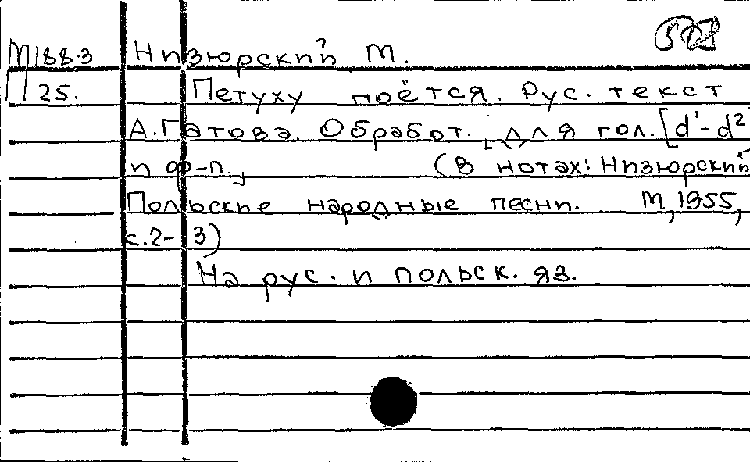 М188.3 Низюрский М.
П 25. Петуху поётся. Рус. текст
А. Гатова. Обработ. для гол. [d¹-d²
и ф-п., (В нотах: Низюрский
Польские народные песни. М, 1955,
с. 2-3)
На рус. и польск. яз.